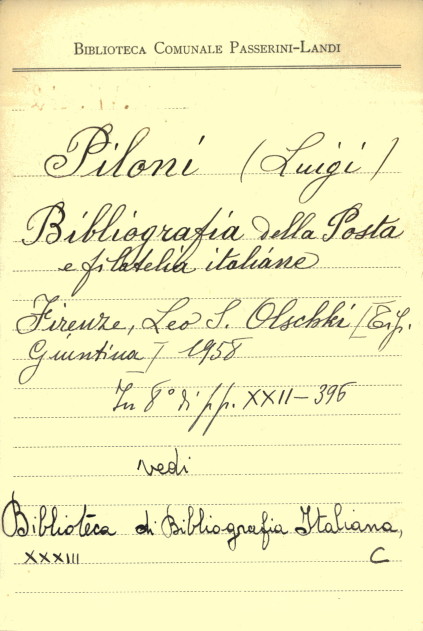 BIBLIOTECA COMUNALE PASSERINI-LANDI
Piloni (Luigi)
Bibliografia della Posta
e filatelia italiane
Firenze, Leo S. Olschki [Tip.
Giuntina] 1958
In 8° di pp. XXII-396
vedi
Biblioteca di Bibliografia Italiana,
XXXIII C